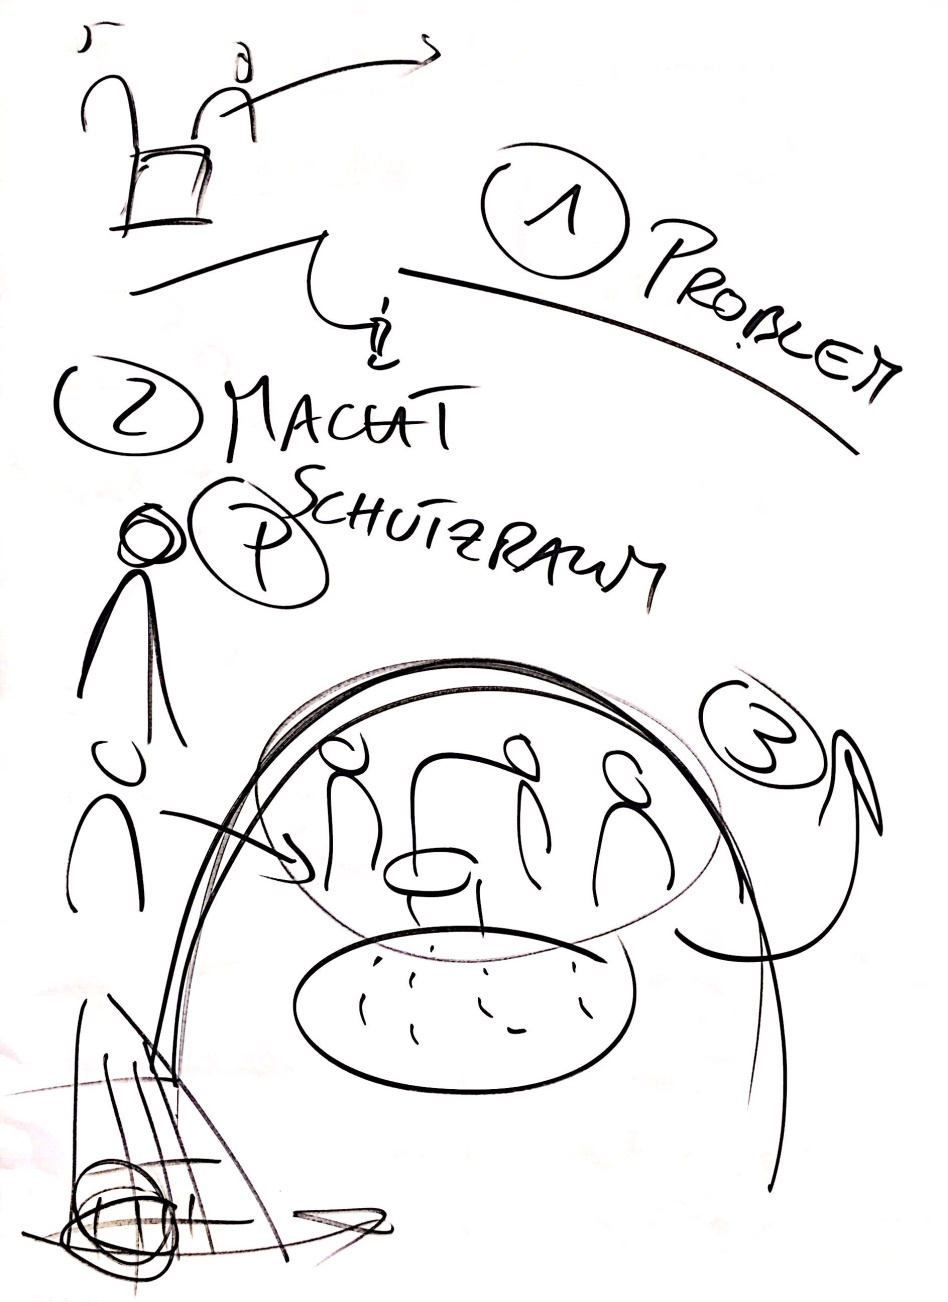 1 PROBLEM
2 MACHT
P SCHUTZRAUM
3